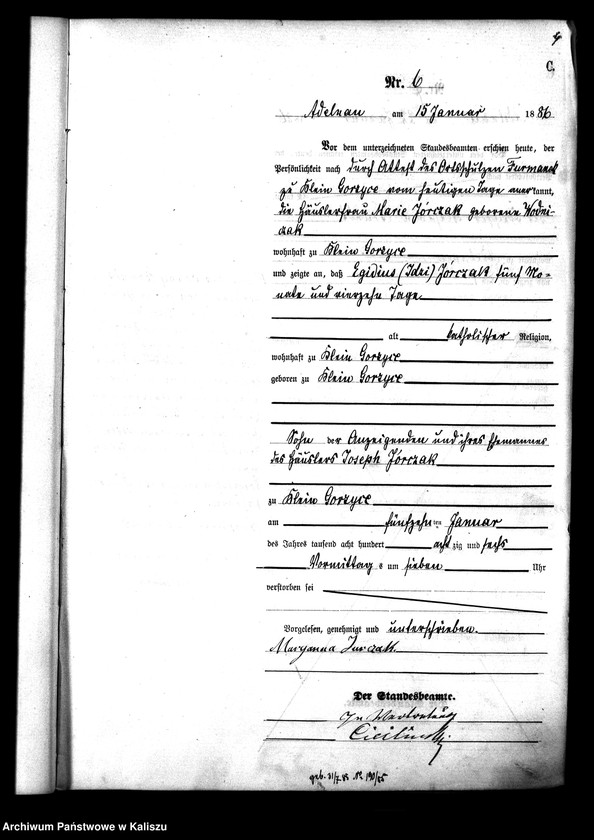 4
C.
Nr. 6
Adelnau am 15 Januar 1886
Vor dem unterzeichneten Standesbeamten erschien heute, der
Persönlichkeit nach durch Attest des Ortsschulzen Furmanek
zu Klein Gorzyce vom heutigen Tage anerkannt,
die Häuslerfrau Marie Jórczak geborene Wodni-
czak
wohnhaft zu Klein Gorzyce
und zeigte an, daß Egidius (Idzi) Jórczak fünf Mo-
nate und vierzehn Tage
alt katholischer Religion,
wohnhaft zu Klein Gorzyce
geboren zu Klein Gorzyce
Sohn der Anzeigenden und ihres Ehemannes
des Häuslers Joseph Jórczak
zu Klein Gorzyce
am fünfzehn ten Januar
des Jahres tausend acht hundert acht zig und sechs
Vormittag s um sieben Uhr
verstorben sei
Vorgelesen, genehmigt und unterschrieben.
Maryanna Jurczak
Der Standesbeamte.
In Vertretung
geb. 31/7. 85 No 190/85
Archiwum Państwowe w Kaliszu